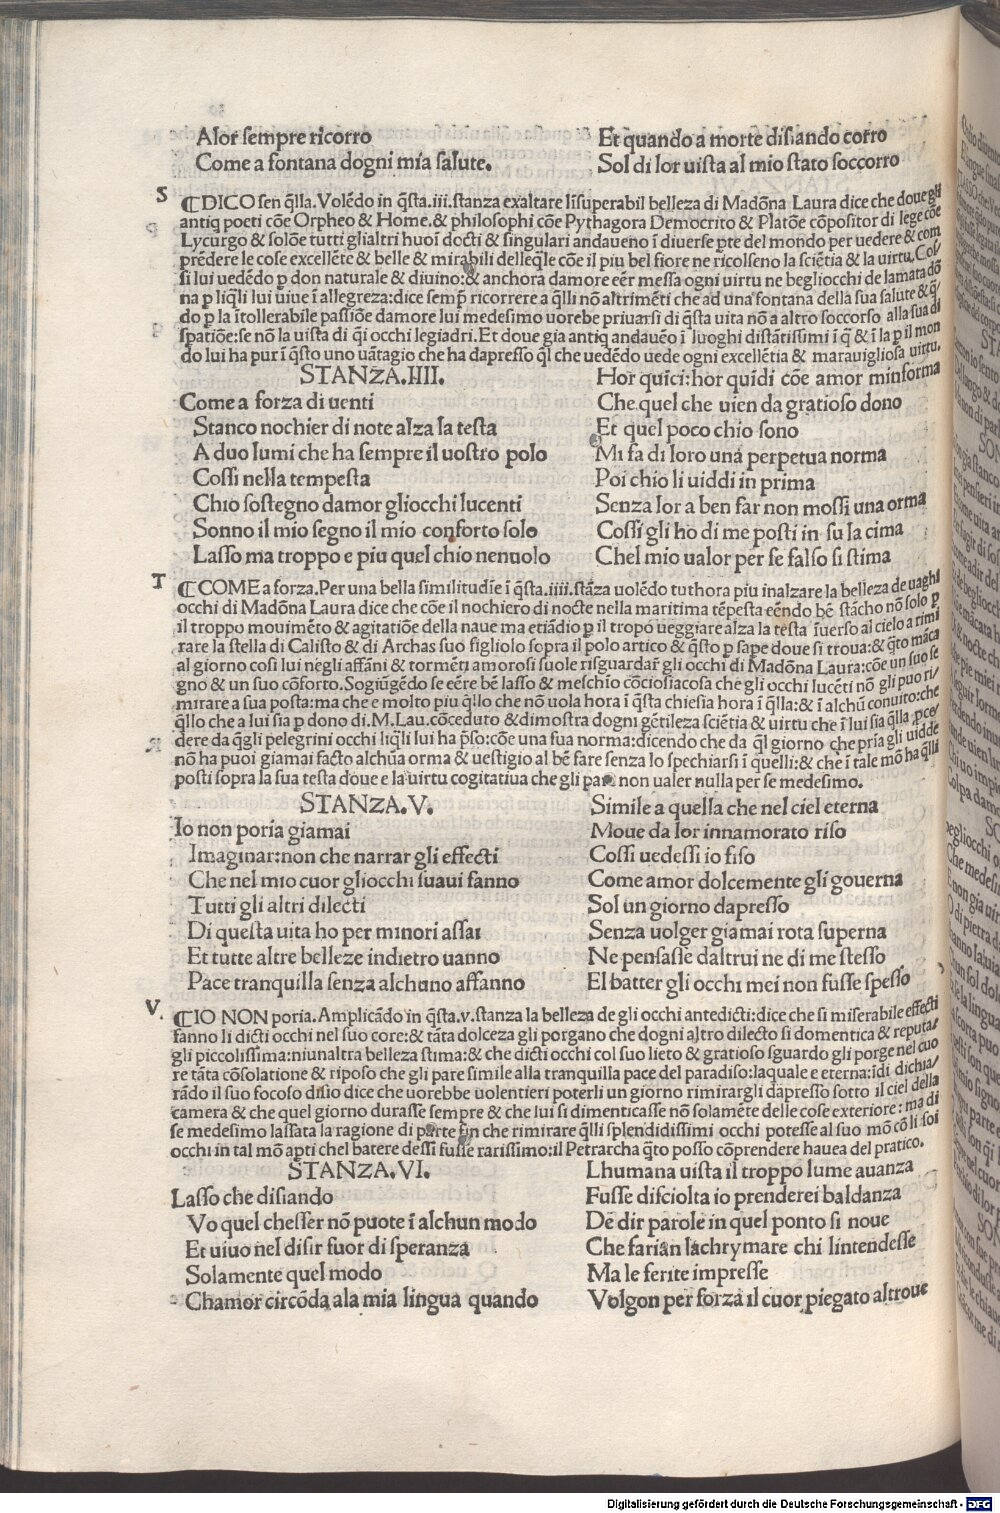 Alor sempre ricorro
Come a fontana dogni mia salute.
Et quando a morte disiando corro
Sol di lor uista al mio stato soccorro
S
¶DICO sen q̃lla. Volẽdo in q̃sta.iii.stanza exaltare lisuperabil belleza di Madõna Laura dice che doue gli
antiq poeti cõe Orpheo & Home. & philosophi cõe Pythagora Democrito & Platõe cõpositor di lege cõe
Lycurgo & solõe tutti glialtri huoĩ docti & singulari andaueno ĩ diuerse ꝑte del mondo per uedere & com
prẽdere le cose excellẽte & belle & mirabili delleq̃le cõe il piu bel fiore ne ricolseno la sciẽtia & la uirtu. Cos
si lui uedẽdo ꝑ don naturale & diuino:& anchora damore eẽr messa ogni uirtu ne begliocchi de lamata dõ
na ꝑ liq̃li lui uiue ĩ allegreza:dice semꝑ ricorrere a q̃lli nõ altrimẽti che ad una fontana della sua salute & q̃/
do ꝑ la ĩtollerabile passiõe damore lui medesimo uorebe priuarsi di q̃sta uita nõ a altro soccorso alla sua di
spatiõe:se nõ la uista di q̃i occhi legiadri. Et doue gia antiq andauẽo ĩ luoghi distãtissimi ĩ q̃ & ĩ la ꝑ il mon
do lui ha pur ĩ q̃sto uno uãtagio che ha dapresso q̃l che uedẽdo uede ogni excellẽtia & marauigliosa uirtu.
STANZA.IIII.
Come a forza di uenti
Stanco nochier di note alza la testa
A duo lumi che ha sempre il uostro polo
Cossi nella tempesta
Chio sostegno damor gliocchi lucenti
Sonno il mio segno il mio conforto solo
Lasso ma troppo e piu quel chio nenuolo
Hor quĩci:hor quĩdi cõe amor minforma
Che quel che uien da gratioso dono
Et quel poco chio sono
Mi fa di loro una perpetua norma
Poi chio li uiddi in prima
Senza lor a ben far non mossi una orma
Cossi gli ho di me posti in su la cima
Chel mio ualor per se falso si stima
T
¶COME a forza.Per una bella similitudĩe ĩ q̃sta.iiii.stãza uolẽdo tuthora piu inalzare la belleza de uaghi
occhi di Madõna Laura dice che cõe il nochiero di nocte nella maritima tẽpesta eẽndo bẽ stãcho nõ solo ꝑ
il troppo mouimẽto & agitatiõe della naue ma etiãdio ꝑ il tropo ueggiare alza la testa ĩuerso al cielo a rimi
rare la stella di Calisto & di Archas suo figliolo sopra il polo artico & q̃sto ꝑ sape doue si troua:& q̃to mãca
al giorno cosi lui negli affãni & tormẽti amorosi suole risguardar̃ gli occhi di Madõna Laura:cõe un suo se
gno & un suo cõforto.Sogiũgẽdo se eẽre bẽ lasso & meschĩo cõciosiacosa che gli occhi lucẽti nõ gli puo ri/
mirare a sua posta:ma che e molto piu q̃llo che nõ uola hora ĩ q̃sta chiesia hora ĩ q̃lla:& ĩ alchũ conuito:che
q̃llo che a lui sia ꝑ dono di.M.Lau.cõceduto & dimostra dogni gẽtileza sciẽtia & uirtu che ĩ lui sia q̃lla ꝓce/
dere da q̃gli pelegrini occhi liq̃li lui ha ꝑso:cõe una sua norma:dicendo che da q̃l giorno che pria gli uidde
nõ ha puoi giamai facto alchũa orma & uestigio al bẽ fare senza lo spechiarsi ĩ quelli:& che ĩ tale mõ ha q̃lli
posti sopra la sua testa doue e la uirtu cogitatiua che gli pare non ualer nulla per se medesimo.
STANZA.V.
Io non poria giamai
Imaginar:non che narrar gli effecti
Che nel mio cuor gliocchi suaui fanno
Tutti gli altri dilecti
Di questa uita ho per minori assai
Et tutte altre belleze indietro uanno
Pace tranquilla senza alchuno affanno
Simile a quella che nel ciel eterna
Moue da lor innamorato riso
Cossi uedessi io fiso
Come amor dolcemente gli gouerna
Sol un giorno dapresso
Senza uolger giamai rota superna
Ne pensasse daltrui ne di me stesso
El batter gli occhi mei non fusse spesso
V.
¶IO NON poria.Amplicãdo in q̃sta.v.stanza la belleza de gli occhi antedicti:dice che si miserabile effecti
fanno li dicti occhi nel suo core:& tãta dolceza gli porgano che dogni altro dilecto si domentica & reputa/
gli piccolissima:niunaltra belleza stima:& che dicti occhi col suo lieto & gratioso sguardo gli porge nel cuo
re tãta cõsolatione & riposo che gli pare simile alla tranquilla pace del paradiso:laquale e eterna:ĩdi dichia/
rãdo il suo focoso disio dice che uorebbe uolentieri poterli un giorno rimirargli dapresso sotto il ciel della
camera & che quel giorno durasse sempre & che lui si dimenticasse nõ solamẽte delle cose exteriore: ma di
se medesimo lassata la ragione di parte fin che rimirare q̃lli splendidissimi occhi potesse al suo mõ cõ li soi
occhi in tal mõ aꝑti chel batere dessi fusse rarissimo:il Petrarcha q̃to posso cõprendere hauea del pratico.
STANZA.VI.
Lasso che disiando
Vo quel chesser nõ puote ĩ alchun modo
Et uiuo nel disir fuor di speranza
Solamente quel modo
Chamor circõda ala mia lingua quando
Lhumana uista il troppo lume auanza
Fusse disciolta io prenderei baldanza
De dir parole in quel ponto si noue
Che farian lachrymare chi lintendesse
Ma le ferite impresse
Volgon per forza il cuor piegato altroue
Digitalisierung gefördert durch die Deutsche Forschungsgemeinschaft - DFG